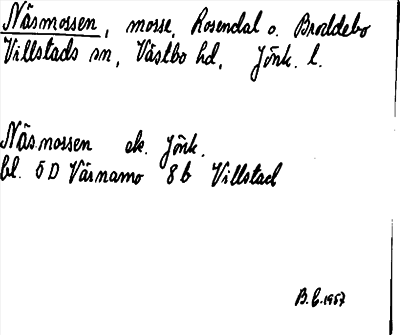 Näsmossen, mosse, Rosendal o. Broddebo
Villstads sn, Västbo hd, Jönk. l.
Näsmossen ek. Jönk.
bl. 5D Värnamo 8b Villstad
B.E.1957